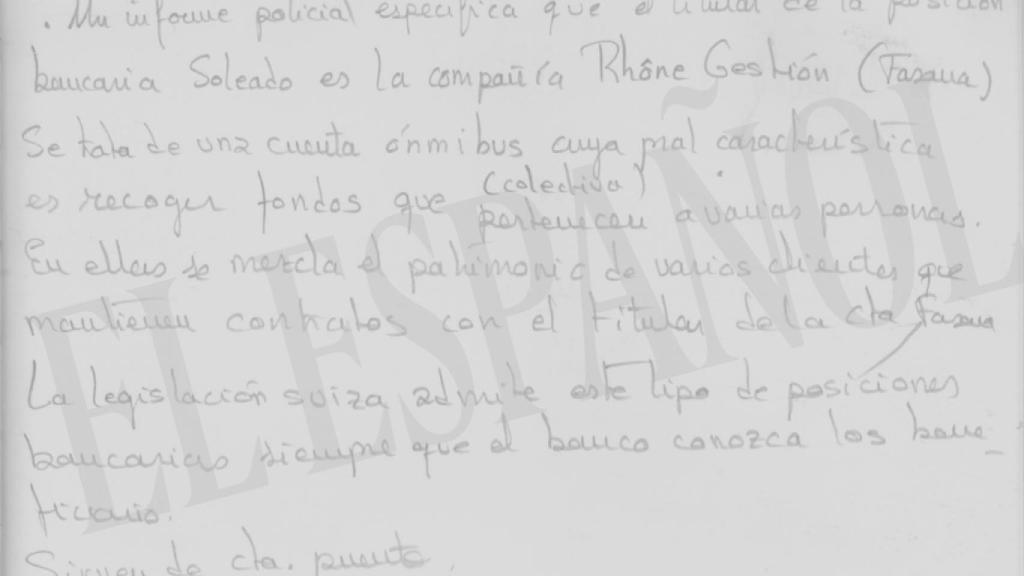 . Un informe policial especifica que el titular de la posición
bancaria Soleado es la compañía Rhône Gestión (Fasana)
Se tata de una cuenta ónmibus cuya pral característica
es recoger fondos que (colectiva) pertenecen a varias personas.
En ellas se mezcla el patrimonio de varios clientes que
mantienen contratos con el titular de la cta Fasana
La legislación suiza admite este tipo de posiciones
bancarias siempre que el banco conozca los bene-
ficiario.
Sirven de cta. puente.
EL ESPAÑOL